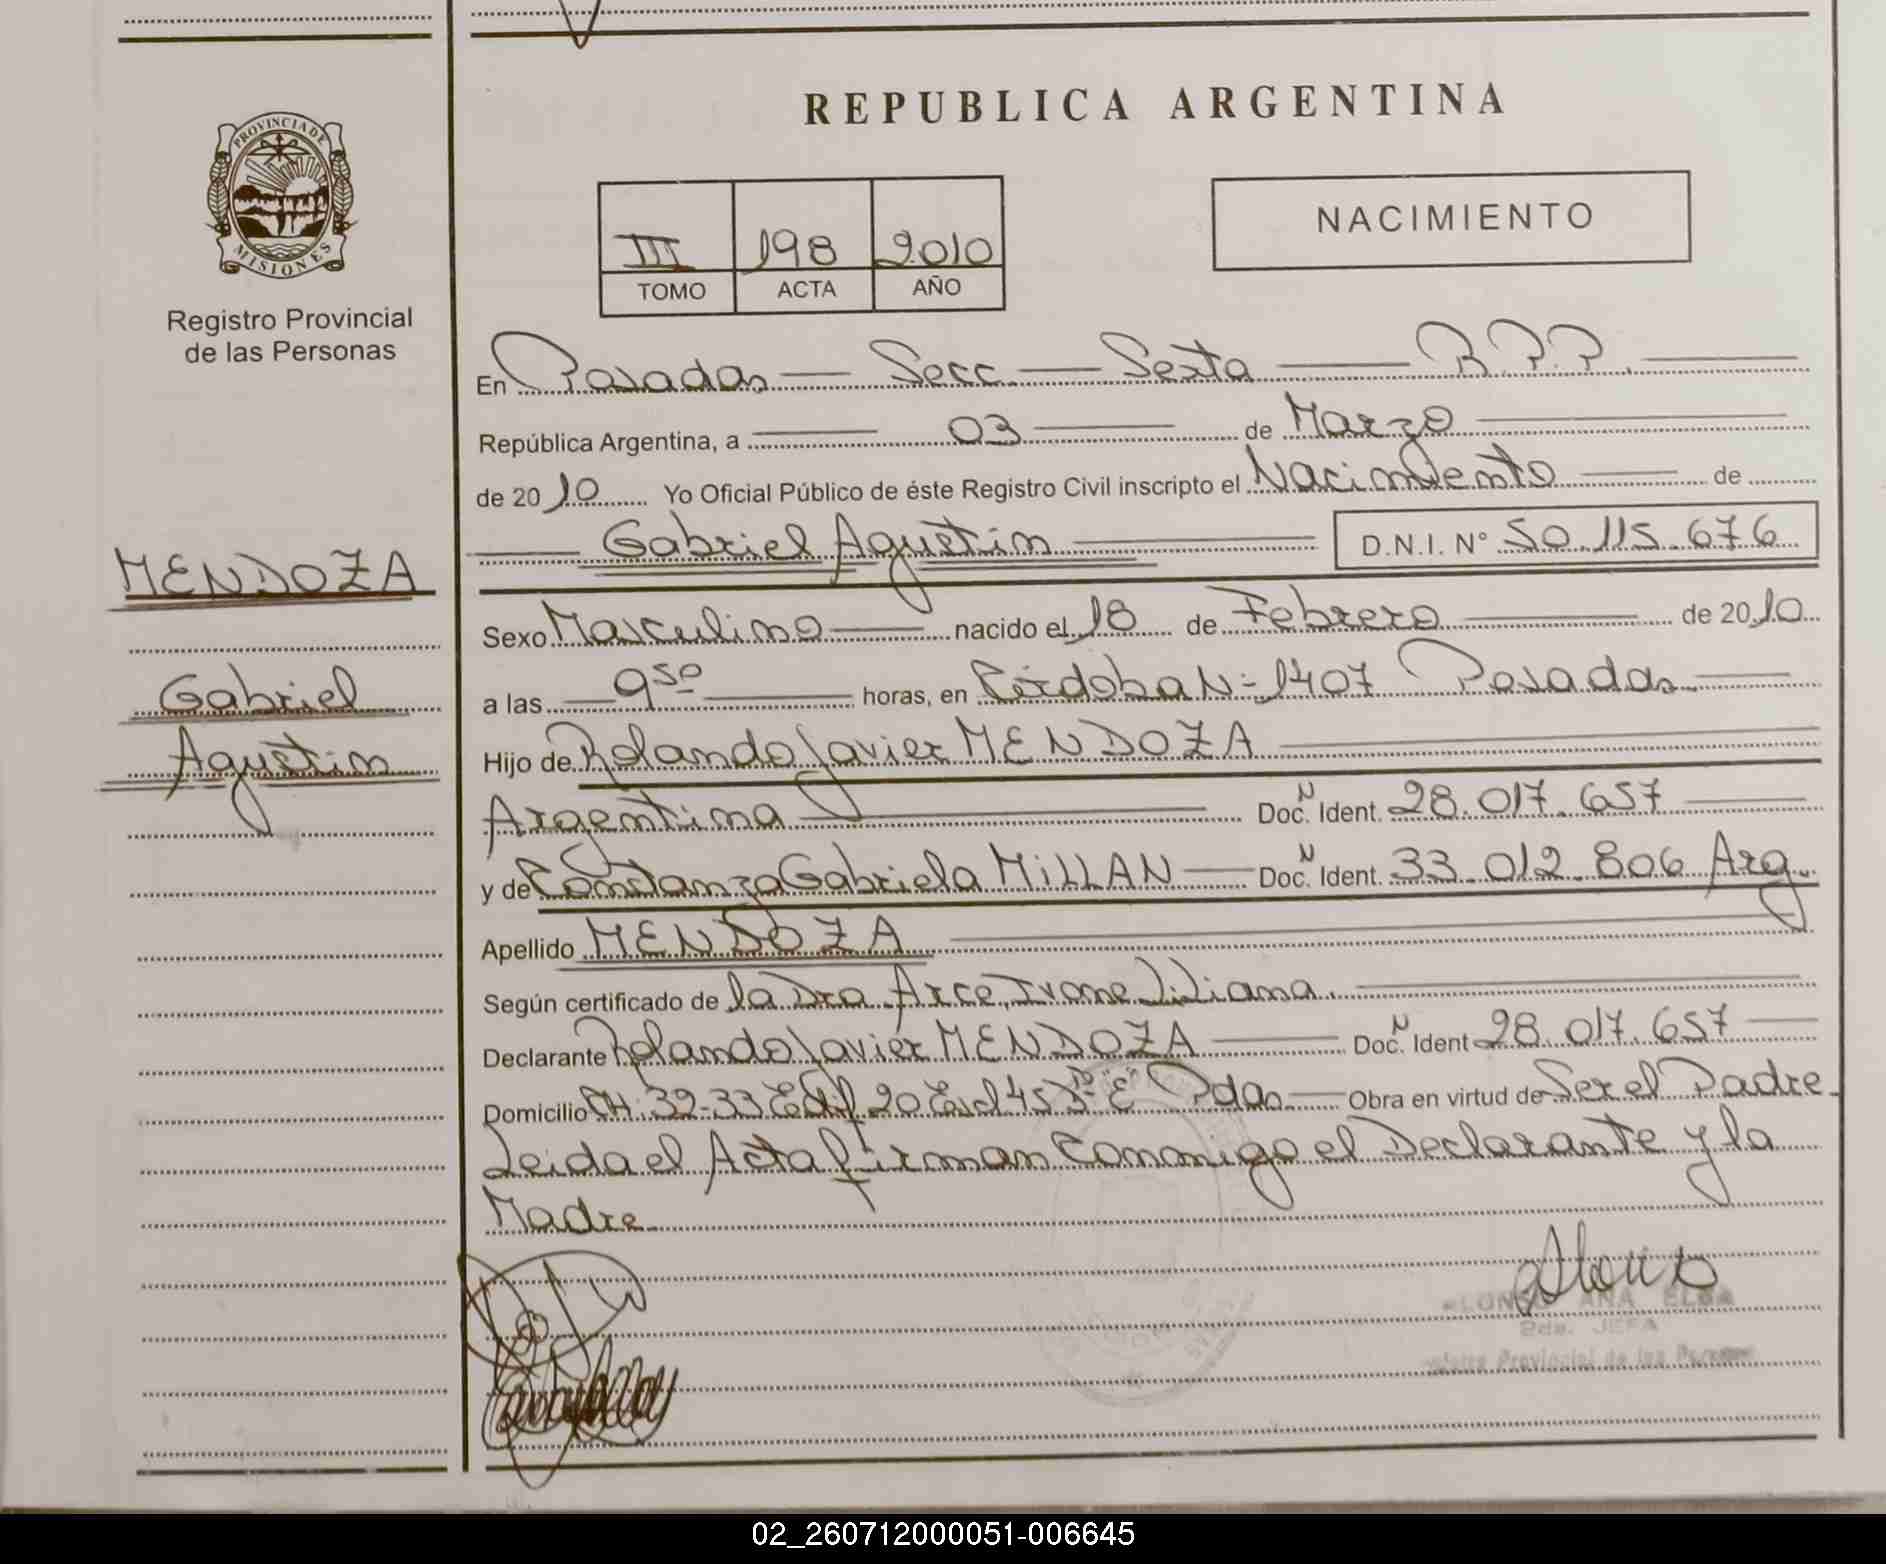 PROVINCIA DE
MISIONES
Registro Provincial
de las Personas
MENDOZA
Gabriel
Agustin
REPUBLICA ARGENTINA
III 198 2010
TOMO ACTA AÑO
NACIMIENTO
En Posadas — Secc. — Sexta — R.P.P.
República Argentina, a 03 de Marzo
de 20 10 Yo Oficial Público de éste Registro Civil inscripto el Nacimiento de
Gabriel Agustin D.N.I. N° 50.115.676
Sexo Masculino nacido el 18 de Febrero de 20 10
a las 9 50 horas, en Córdoba N- 1407 Posadas
Hijo de Rolando Javier MENDOZA
Argentina Doc. N Ident. 28.017.657
y de Constanza Gabriela MiLLAN Doc. N Ident. 33.012.806 Arg.
Apellido MENDOZA
Según certificado de la Dra Arce, Ivone Liliana.
Declarante Rolando Javier MENDOZA Doc. N Ident 28.017.657
Domicilio CH. 32-33 Edif 20 Esc 45 "E" Pdas Obra en virtud de Ser el Padre
Leida el Acta firman Conmigo el Declarante y la
Madre
ALONSO ANA ELBA
2da. JEFA
Registro Provincial de las Personas
02_260712000051-006645